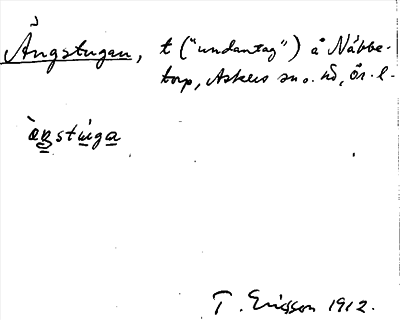 Ångstugan, t ("undantag") å Näbbe-
torp, Askers sn o. hd, Ör. l.
àŋstùga
T. Ericsson 1912.